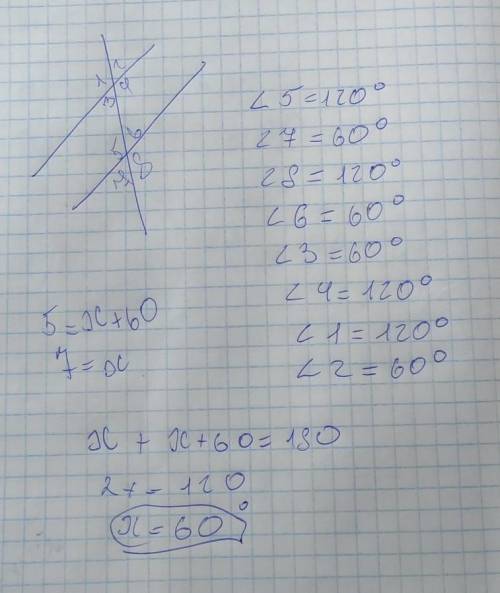 1 2
3 4
5 6
7 8
∠5=120°
∠7=60°
∠8=120°
∠6=60°
∠3=60°
∠4=120°
∠1=120°
∠2=60°
5=x+60
7=x
x+x+60=180
2x=120
x=60°